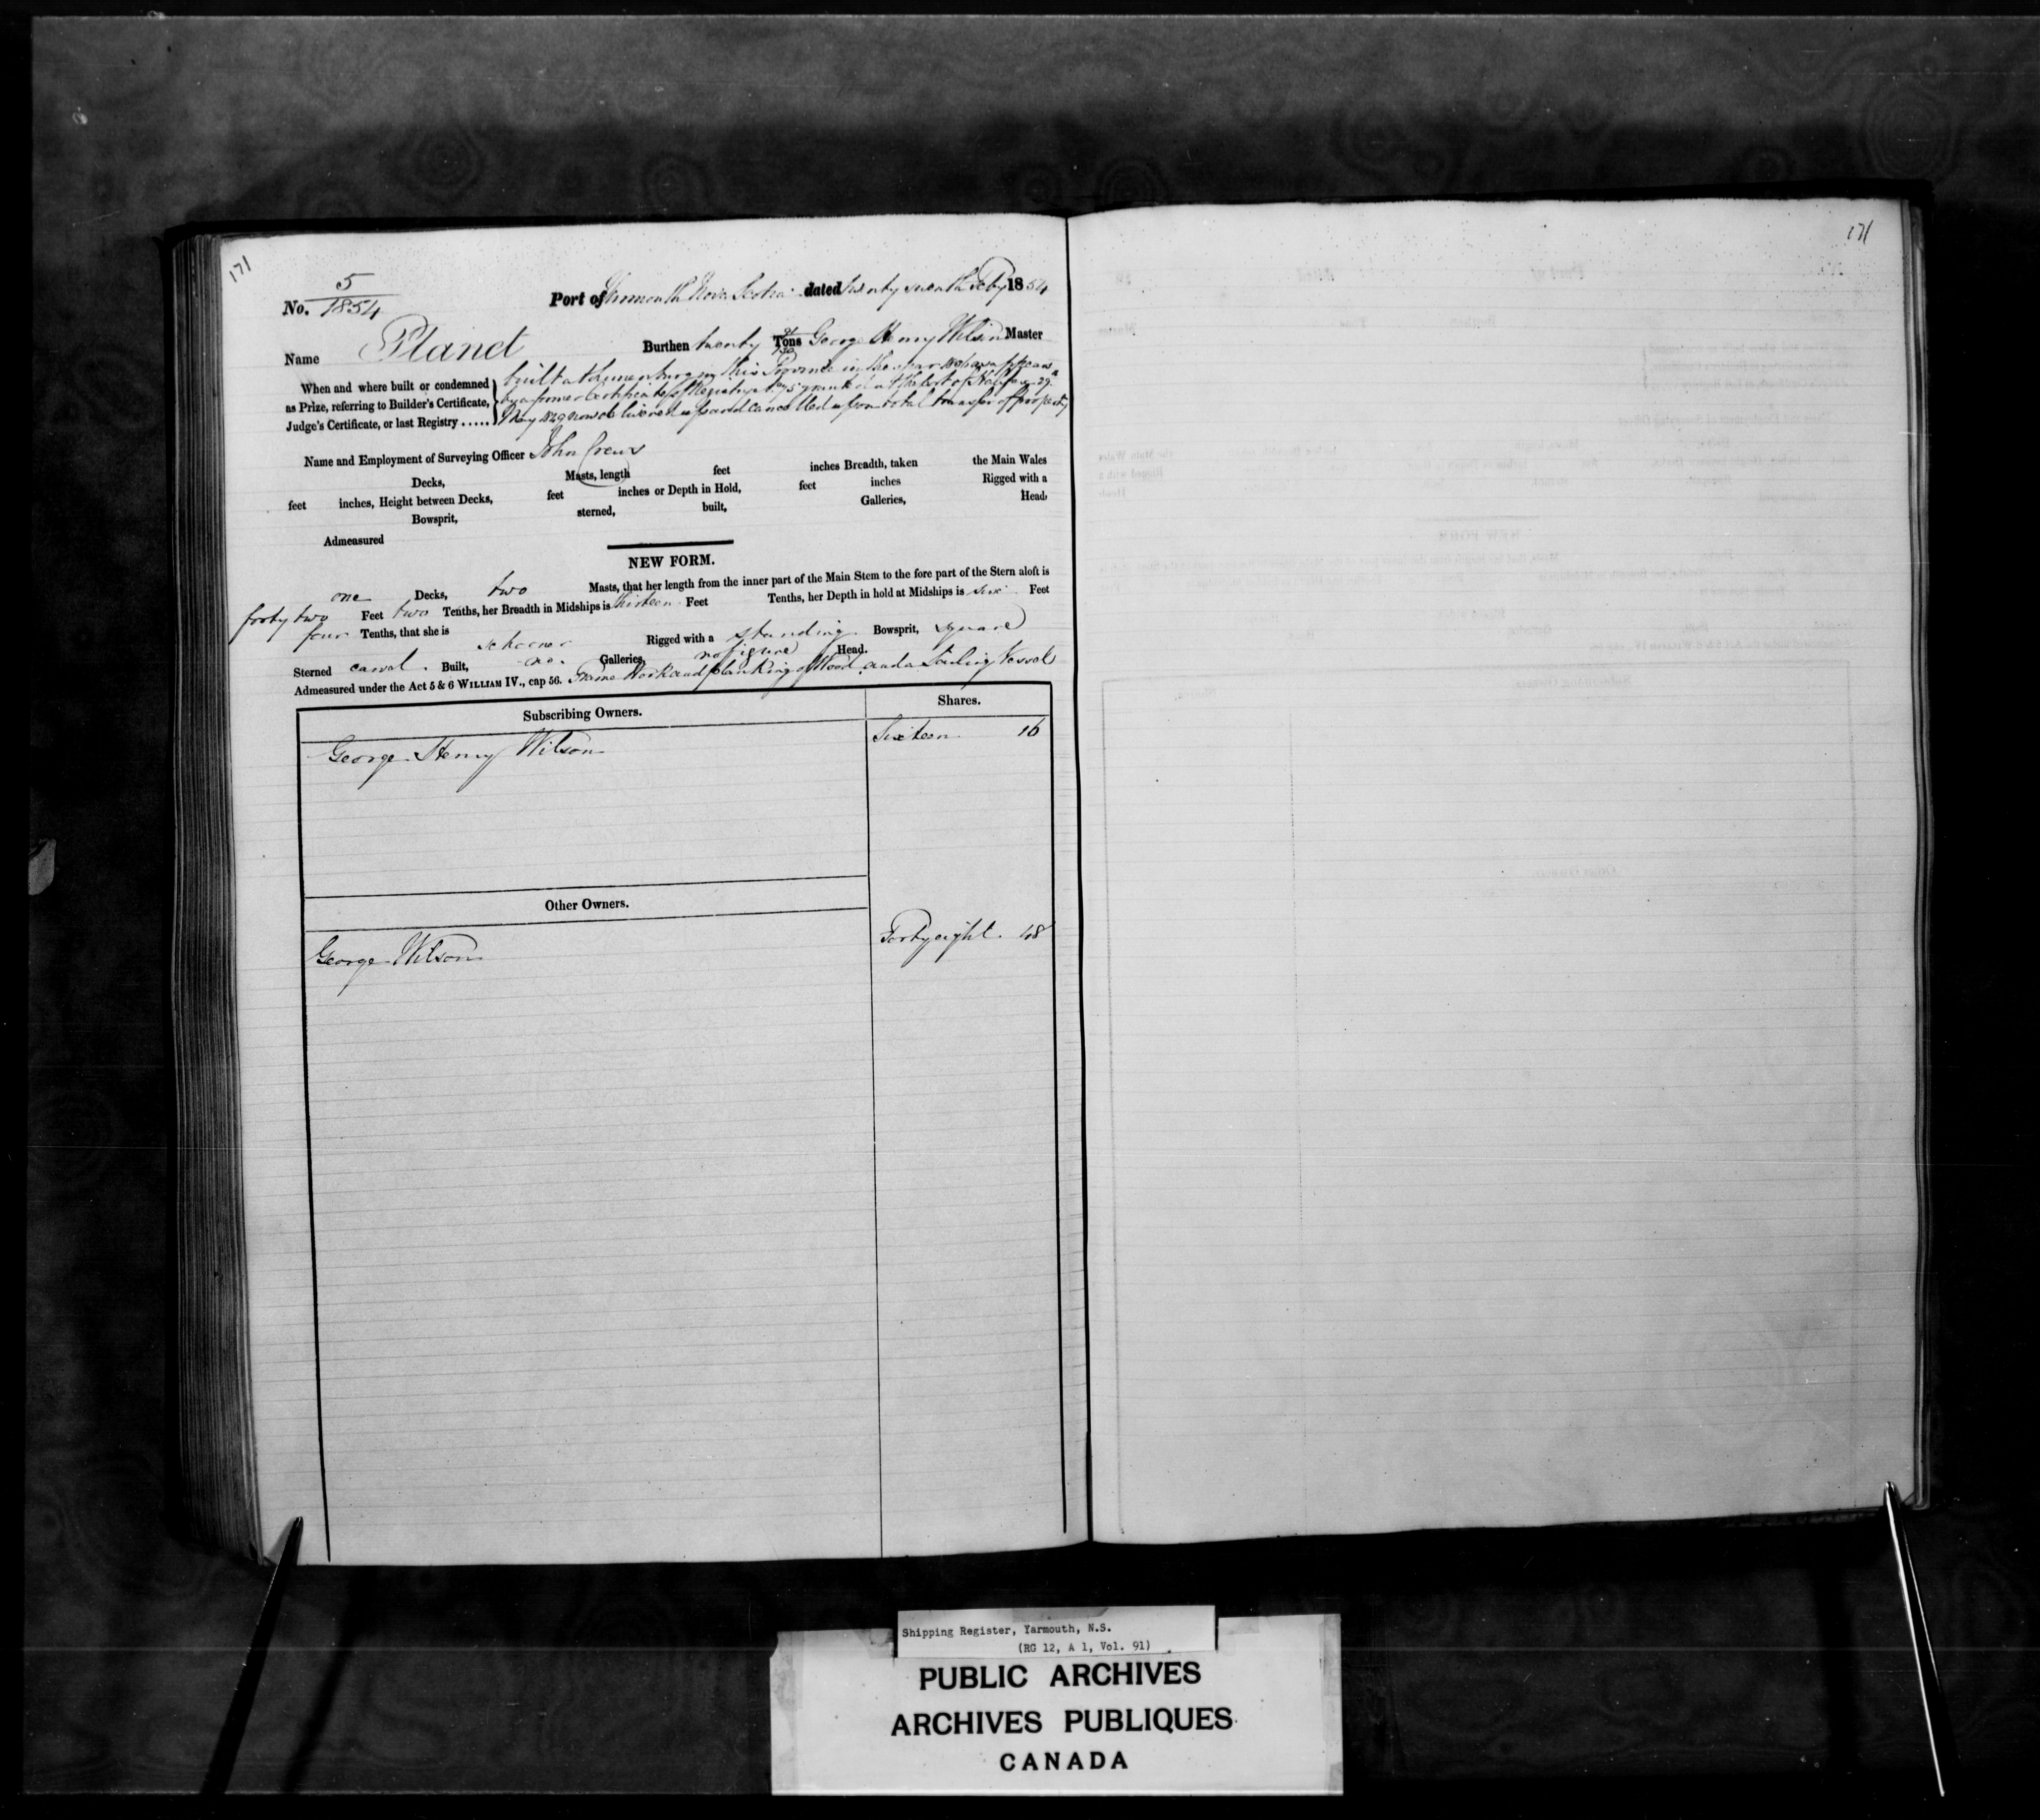 171
171
No. 5/1854 Port of Yarmouth Nova Scotia dated Twenty seventh Feby 1854
Name Planet Burthen twenty Tons George Henry Wilson Master
When and where built or condemned
as Prize, referring to Builder's Certificate,
Judge's Certificate, or last Registry .....
built at Lunenburg in this Province in the year as appears
by a former Certificate of Registry granted at the Port of Halifax 29
May now delivered up and cancelled upon total transfer of property
Name and Employment of Surveying Officer John Crews
Decks, Masts, length feet inches Breadth, taken the Main Wales
feet inches, Height between Decks, feet inches or Depth in Hold, feet inches Rigged with a
Bowsprit, sterned, built, Galleries, Head,
Admeasured
NEW FORM.
one Decks, two Masts, that her length from the inner part of the Main Stem to the fore part of the Stern aloft is
forty two Feet two Tenths, her Breadth in Midships is thirteen Feet Tenths, her Depth in hold at Midships is six Feet
four Tenths, that she is schooner Rigged with a standing Bowsprit, square
Sterned carvel Built, no Galleries, no figure Head.
Admeasured under the Act 5 & 6 WILLIAM IV., cap 56. Frame Work and planking of Wood and a Sailing Vessel
Subscribing Owners. Shares.
George Henry Wilson Sixteen 16
Other Owners.
George Wilson Forty eight 48
Shipping Register, Yarmouth, N.S.
(RG 12, A 1, Vol. 91)
PUBLIC ARCHIVES
ARCHIVES PUBLIQUES
CANADA